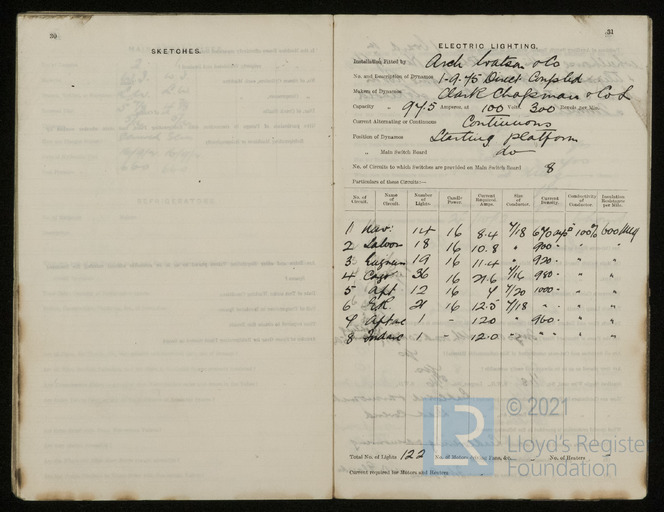 30
SKETCHES.
31
ELECTRIC LIGHTING.
Installation fitted by Arch Watson & Co
No. and Description of Dynamos 1- Direct Coupled
Makers of Dynamos Clark Chapman & Co L
Capacity Amperes, at 100 Volts 300 Revols per Min.
Current Alternating or Continuous Continuous
Position of Dynamos Starting platform
„ Main Switch Board do
No. of Circuits to which Switches are provided on Main Switch Board 8
Particulars of these Circuits:—
No. of Circuit. Name of Circuit. Number of Lights. Candle Power. Current Required. Amps. Size of Conductor. Current Density. Conductivity of Conductor. Insulation Resistance per Mile.
1 Nav: 14 16 8.4 7/18 100% 600 Meg
2 Saloon 18 16 10.8 " 900 " "
3 19 16 11.4 " 920 " "
4 Cargo 36 16 21.6 7/16 980 " "
5 Aft 12 16 7 7/20 1000 " "
6 E.R. 21 16 12.5 7/18 " " "
7 1 - 12.0 " 960 " "
8 1 - 12.0 " " " "
Total No. of Lights 122 No. of Motors driving Fans, &c. No. of Heaters
Current required for Motors and Heaters
LR
© 2021
Lloyd's Register
Foundation